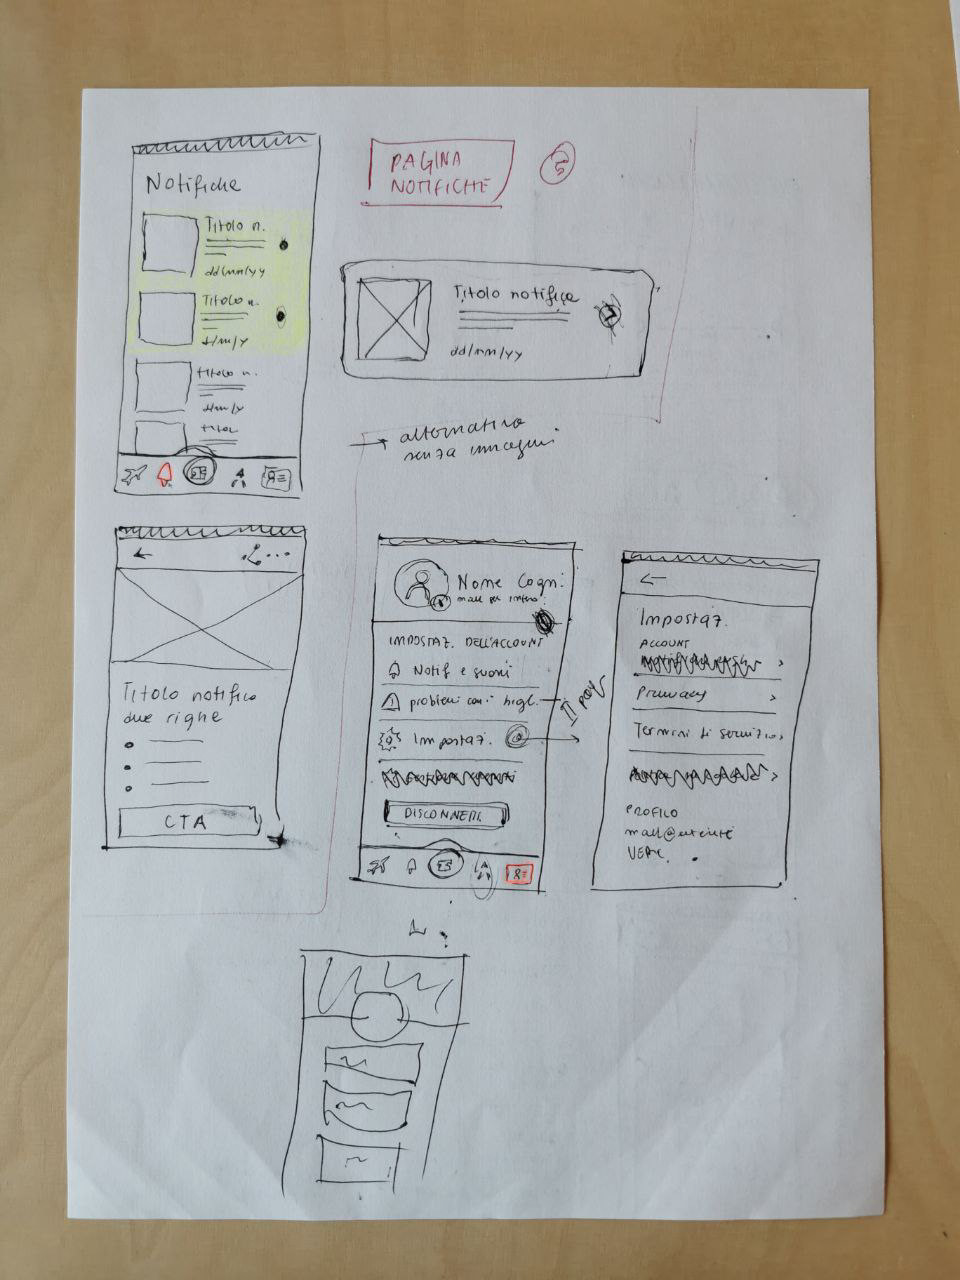 Notifiche
Titolo n.
dd/mm/yy
Titolo n.
d/m/y
titolo n.
d/m/y
titol
PAGINA
NOTIFICHE
5
Titolo notifica
dd/mm/yy
alternativa
senza immagini
Titolo notifica
due righe
CTA
Nome Cogn.
IMPOSTAZ. DELL'ACCOUNT
Notif e suoni
problemi con i bigl.
Impostaz.
DISCONNETTI
Impostaz.
ACCOUNT
Termini di servizio
PROFILO
mail@utente